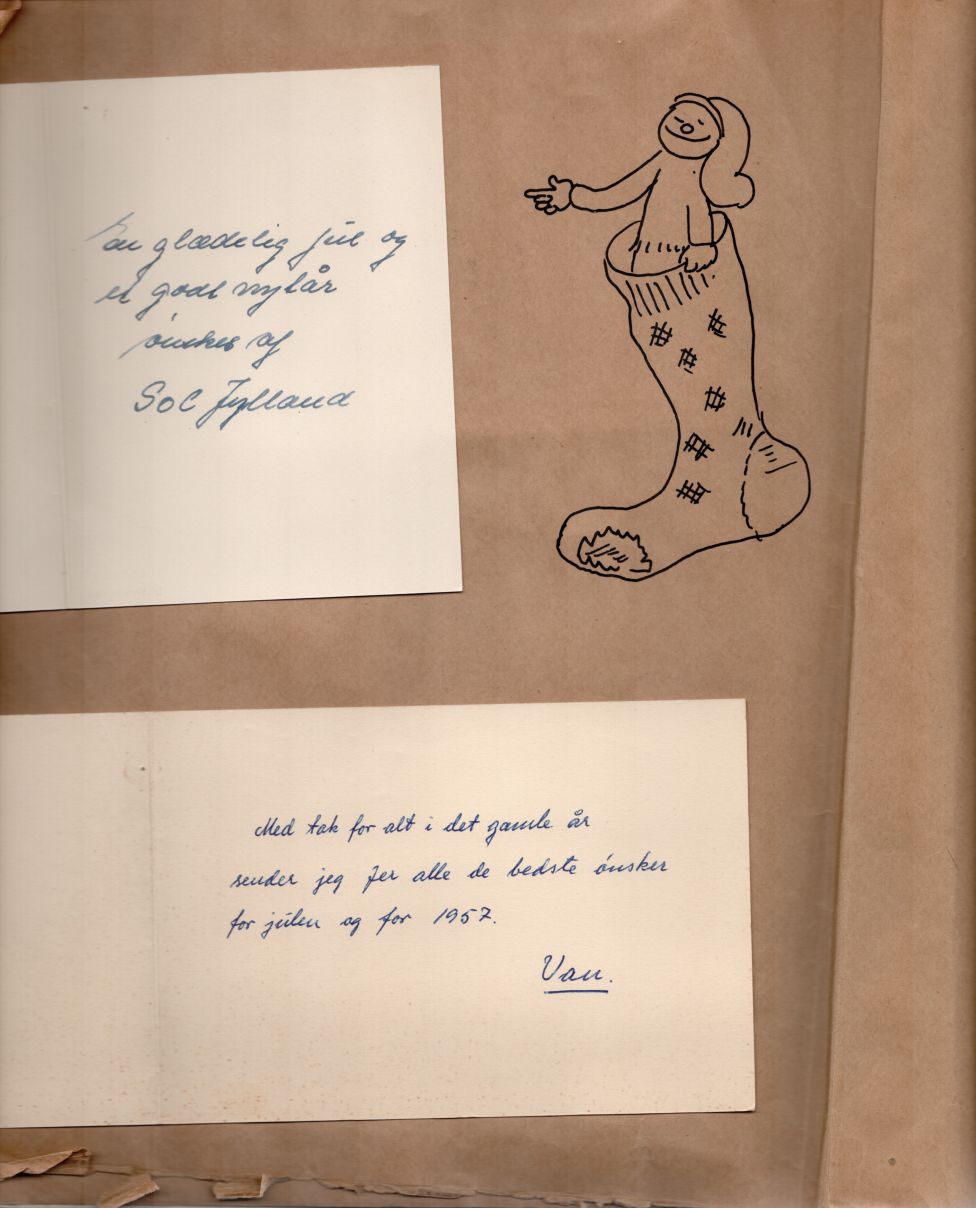 En glædelig jul og
et godt nytår
ønskes af
SOC Jylland
Med tak for alt i det gamle år
sender jeg Jer alle de bedste ønsker
for julen og for 1957.
Van.